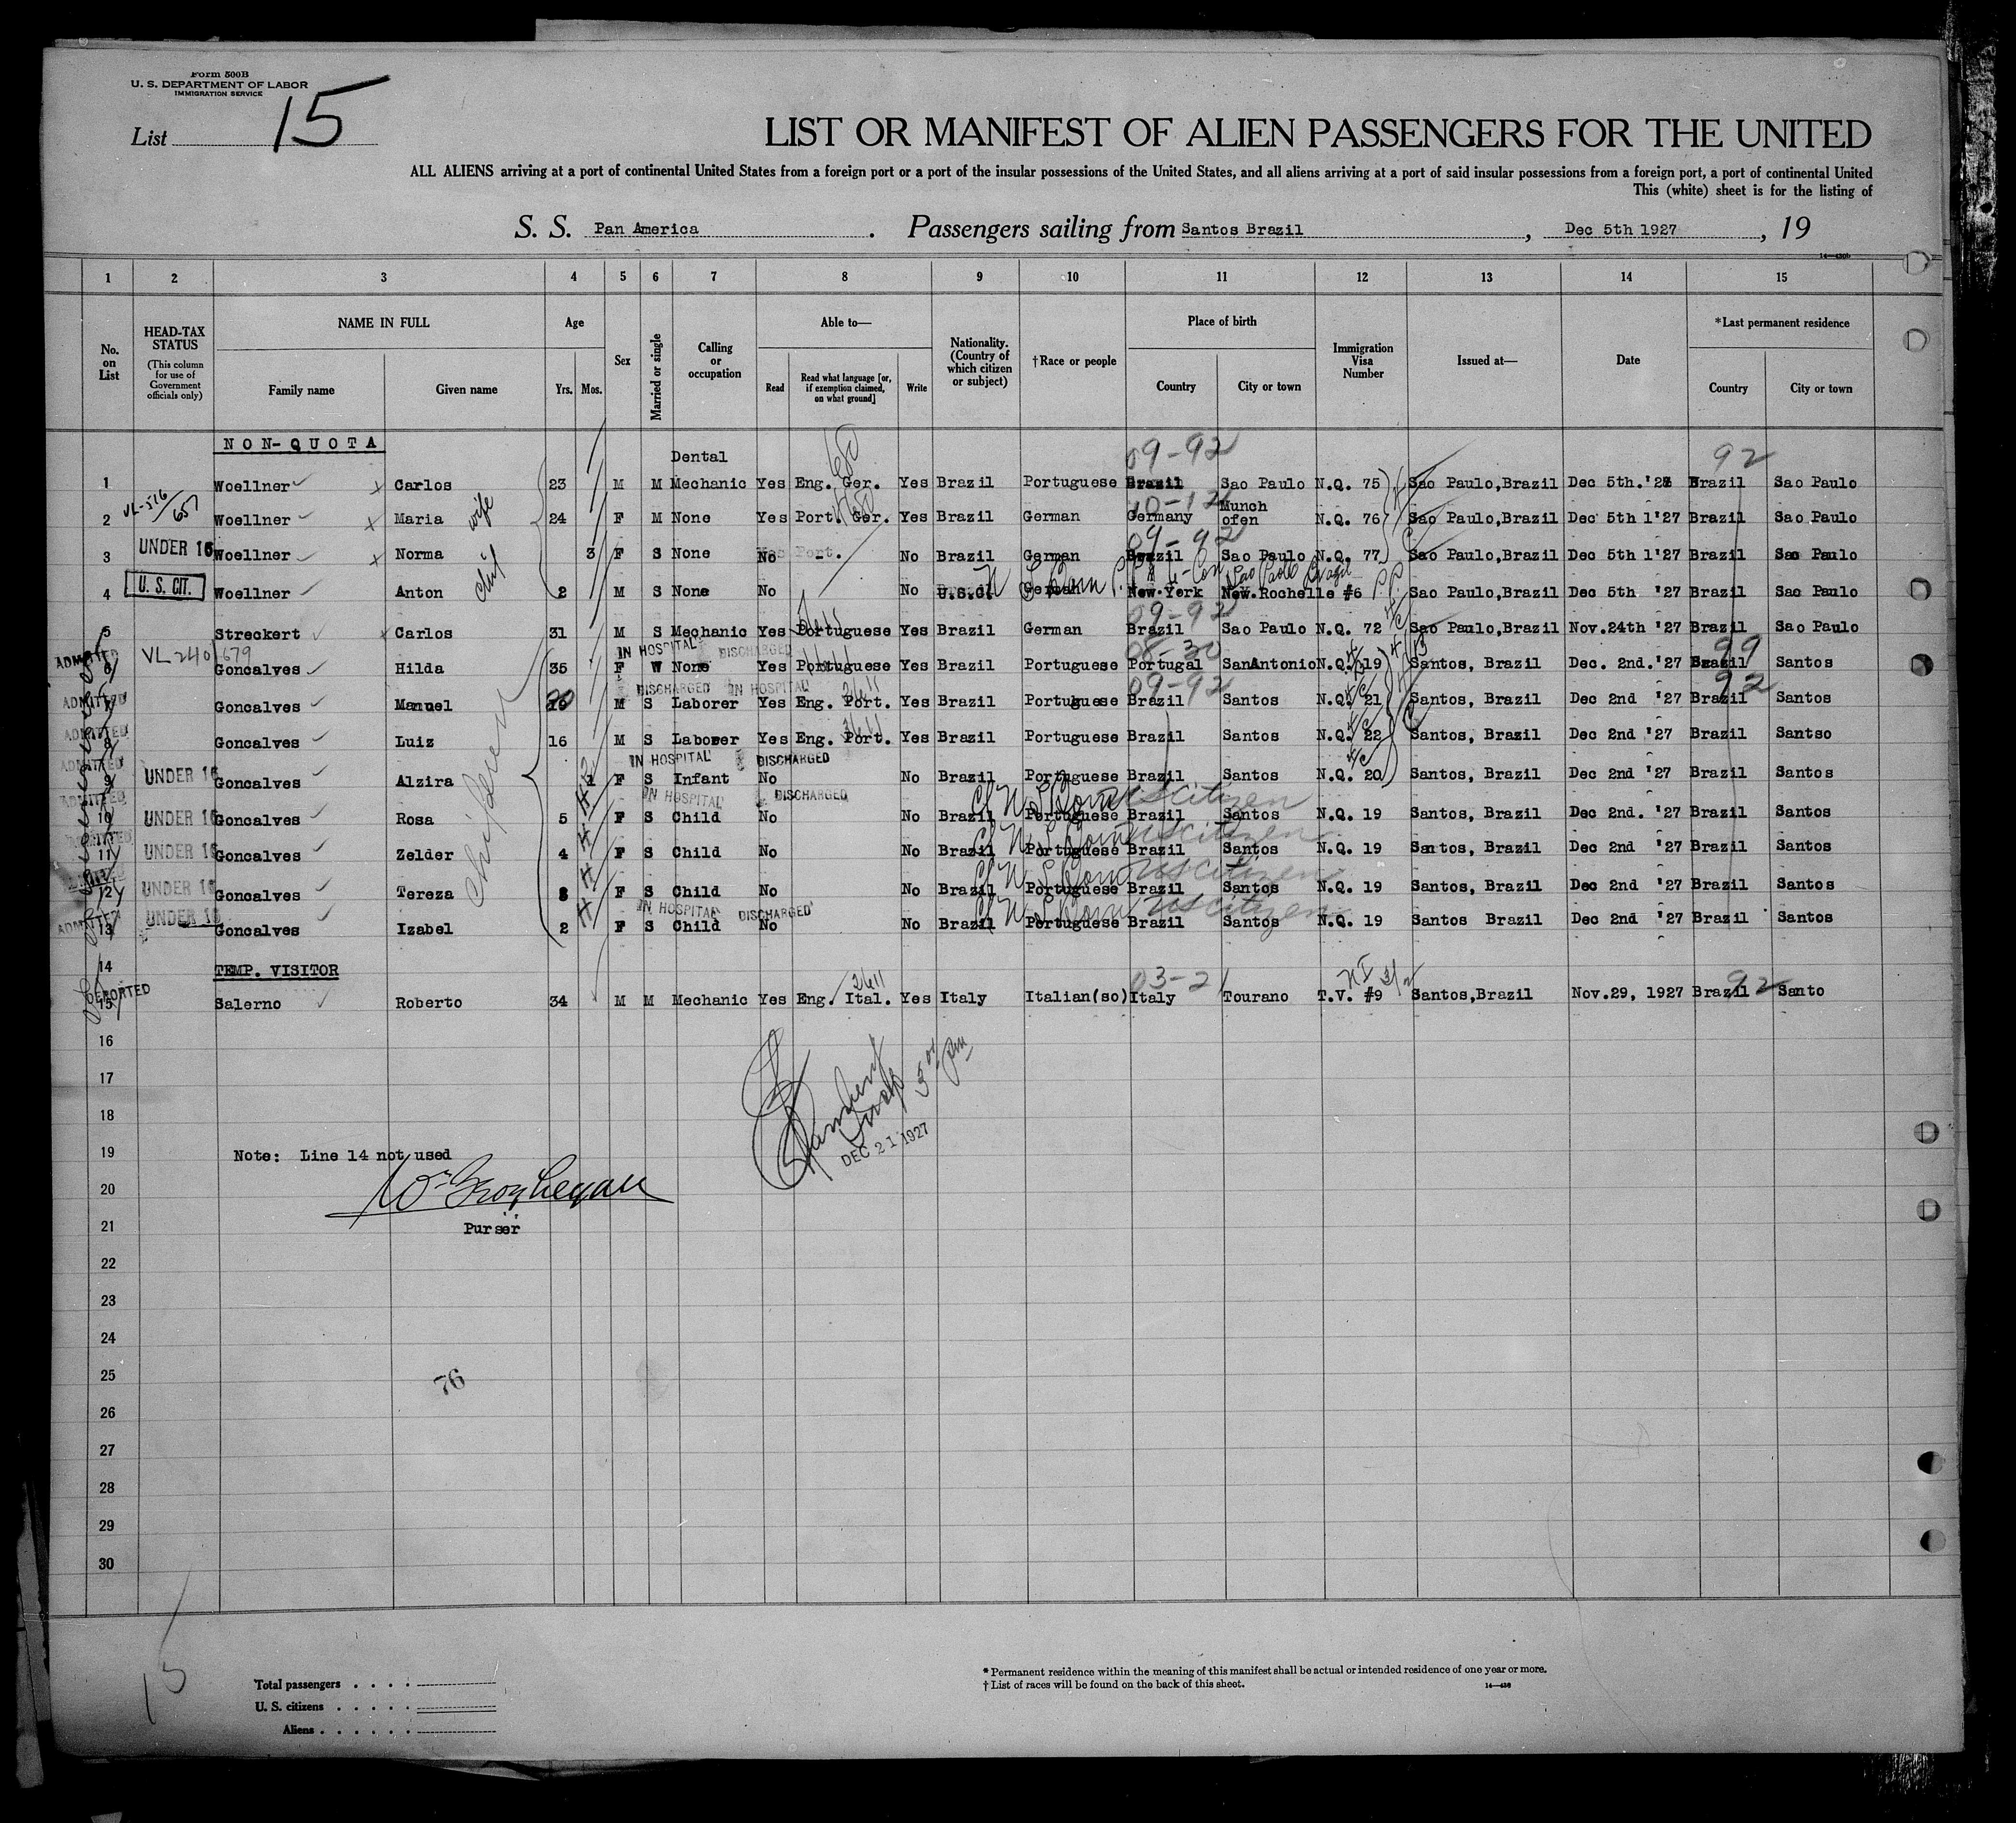 Form 500B
U. S. DEPARTMENT OF LABOR
IMMIGRATION SERVICE
List 15
LIST OR MANIFEST OF ALIEN PASSENGERS FOR THE UNITED
ALL ALIENS arriving at a port of continental United States from a foreign port or a port of the insular possessions of the United States, and all aliens arriving at a port of said insular possessions from a foreign port, a port of continental United
This (white) sheet is for the listing of
S. S. Pan America. Passengers sailing from Santos Brazil, Dec 5th 1927, 19
14—430b
1 2 3 4 5 6 7 8 9 10 11 12 13 14 15
No. on List
HEAD-TAX STATUS (This column for use of Government officials only)
NAME IN FULL Family name Given name
Age Yrs. Mos.
Sex
Married or single
Calling or occupation
Able to— Read Read what language [or, if exemption claimed, on what ground] Write
Nationality. (Country of which citizen or subject)
†Race or people
Place of birth Country City or town
Immigration Visa Number
Issued at—
Date
*Last permanent residence Country City or town
NON-QUOTA
09-92 92
1 Woellner Carlos 23 M M Dental Mechanic Yes Eng. Ger. Yes Brazil Portuguese Brazil Sao Paulo N.Q. 75 Sao Paulo,Brazil Dec 5th.'27 Brazil Sao Paulo
10-12
2 VL-516/657 Woellner Maria wife 24 F M None Yes Port. Ger. Yes Brazil German Germany Munch ofen N.Q. 76 Sao Paulo,Brazil Dec 5th 1'27 Brazil Sao Paulo
09-92
3 UNDER 16 Woellner Norma 3 F S None No - No Brazil German Brazil Sao Paulo N.Q. 77 Sao Paulo,Brazil Dec 5th 1'27 Brazil Sao Paulo
4 U. S. CIT. Woellner Anton 2 M S None No No U.S.C. German New York New Rochelle #6 P.P. Sao Paulo,Brazil Dec 5th '27 Brazil Sao Paulo
09-92
5 Streckert Carlos 31 M S Mechanic Yes Portuguese Yes Brazil German Brazil Sao Paulo N.Q. 72 Sao Paulo,Brazil Nov.24th '27 Brazil Sao Paulo
IN HOSPITAL DISCHARGED 08-30 99
ADMITTED 6 VL 240/679 Goncalves Hilda 35 F W None Yes Portuguese Yes Brazil Portuguese Portugal SanAntonio N.Q. 19 Santos, Brazil Dec. 2nd.'27 Brazil Santos
DISCHARGED IN HOSPITAL 09-92 92
ADMITTED 7 Goncalves Manuel 20 M S Laborer Yes Eng. Port. Yes Brazil Portuguese Brazil Santos N.Q. 21 Santos, Brazil Dec 2nd '27 Brazil Santos
ADMITTED 8 Goncalves Luiz 16 M S Laborer Yes Eng. Port. Yes Brazil Portuguese Brazil Santos N.Q. 22 Santos, Brazil Dec 2nd '27 Brazil Santso
IN HOSPITAL DISCHARGED
ADMITTED 9 UNDER 16 Goncalves Alzira 1 F S Infant No No Brazil Portuguese Brazil Santos N.Q. 20 Santos, Brazil Dec 2nd '27 Brazil Santos
IN HOSPITAL DISCHARGED US Citizen
ADMITTED 10 UNDER 16 Goncalves Rosa 5 F S Child No No Brazil Portuguese Brazil Santos N.Q. 19 Santos, Brazil Dec 2nd. '27 Brazil Santos
US Citizen
ADMITTED 11 UNDER 16 Goncalves Zelder 4 F S Child No No Brazil Portuguese Brazil Santos N.Q. 19 Santos, Brazil Dec 2nd '27 Brazil Santos
US Citizen
12 UNDER 16 Goncalves Tereza 3 F S Child No No Brazil Portuguese Brazil Santos N.Q. 19 Santos, Brazil Dec 2nd '27 Brazil Santos
IN HOSPITAL DISCHARGED US Citizen
ADMITTED 13 UNDER 16 Goncalves Izabel 2 F S Child No No Brazil Portuguese Brazil Santos N.Q. 19 Santos Brazil Dec 2nd '27 Brazil Santos
14 TEMP. VISITOR
03-21 92
DEPORTED 15 Salerno Roberto 34 M M Mechanic Yes Eng. Ital. Yes Italy Italian(so) Italy Tourano T.V. #9 Santos,Brazil Nov.29, 1927 Brazil Santo
16
17
18
DEC 21 1927
19 Note: Line 14 not used
20
21 Purser
22
23
24
25 76
26
27
28
29
30
15
Total passengers
U. S. citizens
Aliens
* Permanent residence within the meaning of this manifest shall be actual or intended residence of one year or more.
† List of races will be found on the back of this sheet. 14—430